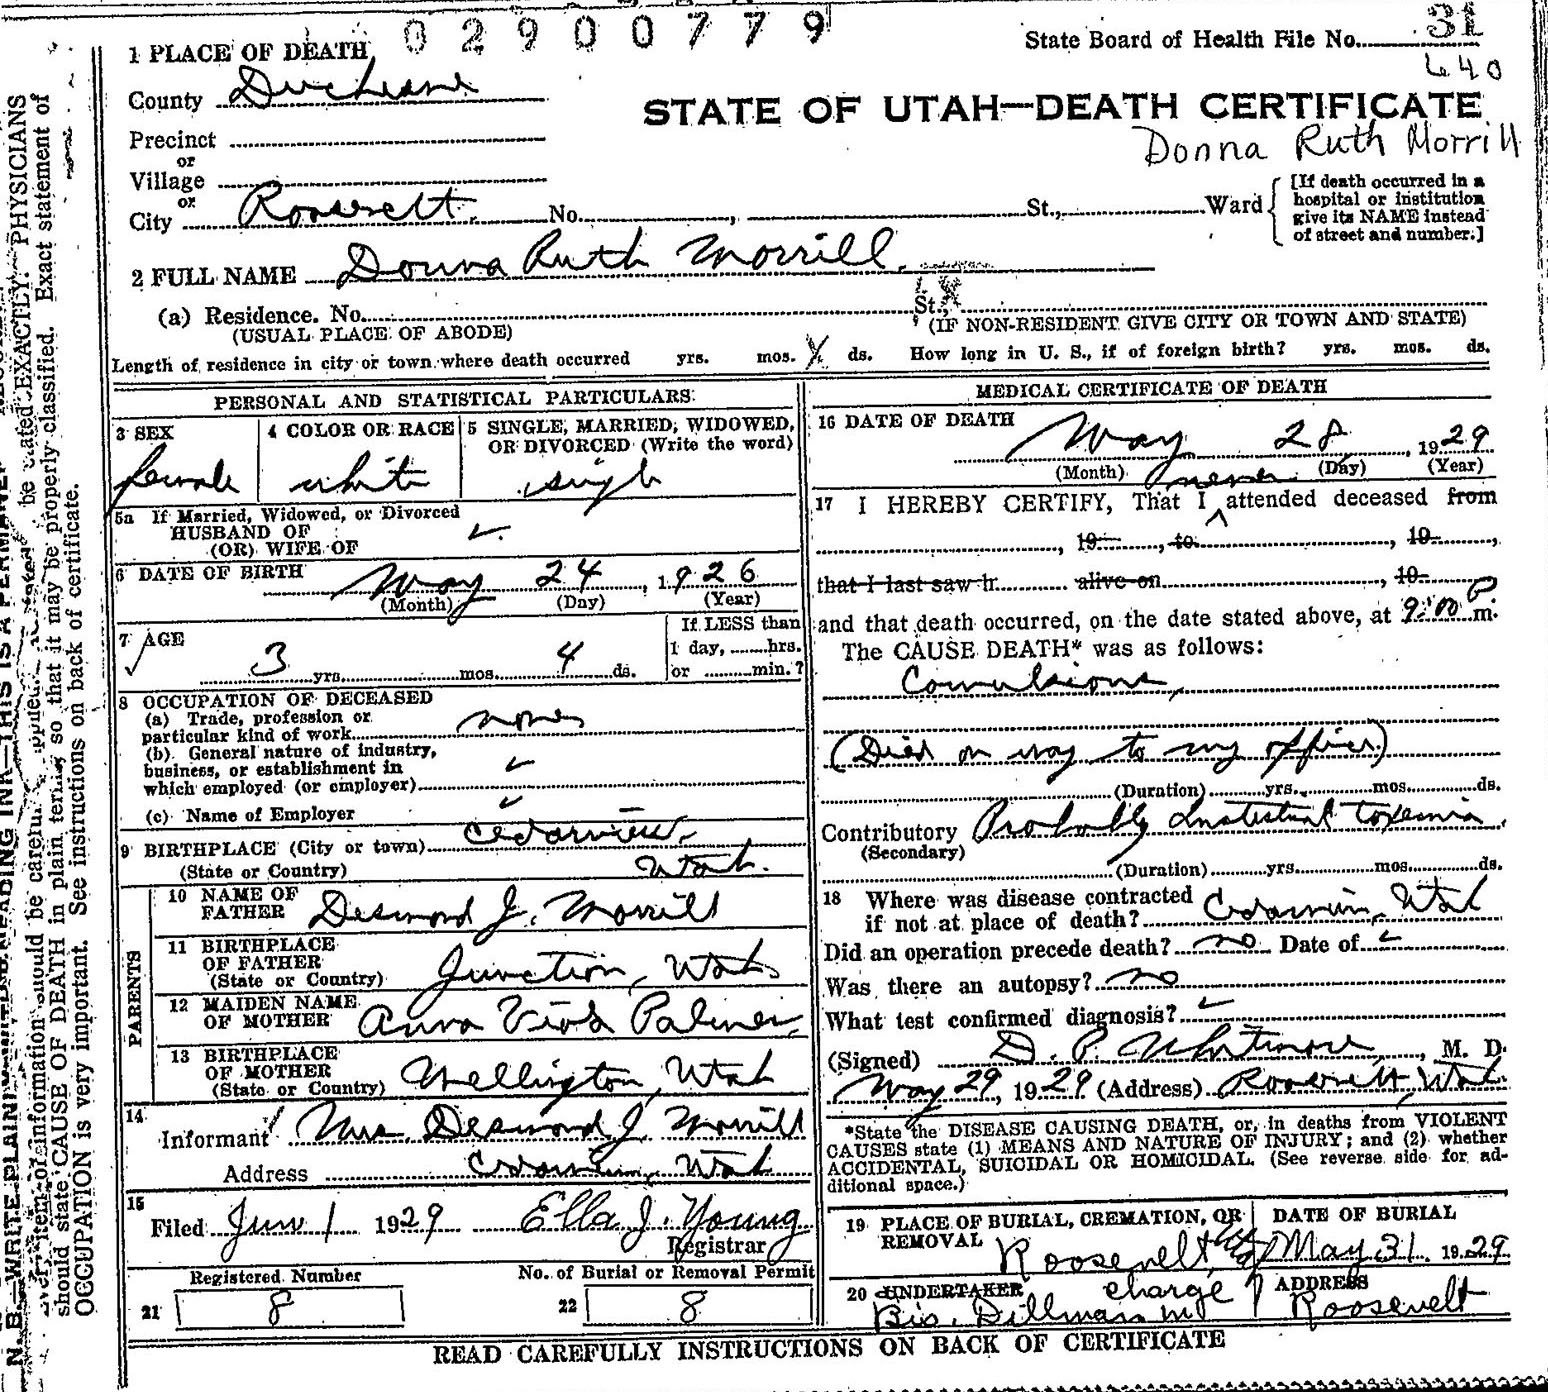 02900779
State Board of Health File No. 31
640
1 PLACE OF DEATH
County Duchesne
STATE OF UTAH—DEATH CERTIFICATE
Donna Ruth Morrill
Precinct
or
Village
or
City Roosevelt. No. , St., Ward
[If death occurred in a hospital or institution give its NAME instead of street and number.]
2 FULL NAME Donna Ruth Morrill.
(a) Residence. No. St.,
(USUAL PLACE OF ABODE) (IF NON-RESIDENT GIVE CITY OR TOWN AND STATE)
Length of residence in city or town where death occurred yrs. mos. ds. How long in U. S., if of foreign birth? yrs. mos. ds.
PERSONAL AND STATISTICAL PARTICULARS
3 SEX
female
4 COLOR OR RACE
white
5 SINGLE, MARRIED, WIDOWED, OR DIVORCED (Write the word)
single
5a If Married, Widowed, or Divorced
HUSBAND OF
(OR) WIFE OF
6 DATE OF BIRTH May 24, 1926
(Month) (Day) (Year)
7 AGE
3 yrs. mos. 4 ds.
If LESS than
1 day, hrs.
or min.?
8 OCCUPATION OF DECEASED
(a) Trade, profession or
particular kind of work none
(b) General nature of industry,
business, or establishment in
which employed (or employer)
(c) Name of Employer
9 BIRTHPLACE (City or town) Cedarview,
(State or Country) Utah.
PARENTS
10 NAME OF FATHER Desmond J. Morrill
11 BIRTHPLACE OF FATHER (State or Country) Junction, Utah
12 MAIDEN NAME OF MOTHER Anna Viola Palmer,
13 BIRTHPLACE OF MOTHER (State or Country) Wellington, Utah
14
Informant Mrs Desmond J. Morrill
Address Cedarview, Utah
15
Filed June 1 1929 Ella J. Young
Registrar
Registered Number
21 8
No. of Burial or Removal Permit
22 8
MEDICAL CERTIFICATE OF DEATH
16 DATE OF DEATH
May 28, 1929
(Month) (Day) (Year)
never
17 I HEREBY CERTIFY, That I attended deceased from
, 19 , to , 19 ,
that I last saw h alive on , 19
and that death occurred, on the date stated above, at 9:00 P m.
The CAUSE DEATH* was as follows:
Convulsions,
(Died on way to my office)
(Duration) yrs. mos. ds.
Contributory Probably Intestinal toxemia.
(Secondary)
(Duration) yrs. mos. ds.
18 Where was disease contracted
if not at place of death? Cedarview, Utah
Did an operation precede death? no Date of
Was there an autopsy? no
What test confirmed diagnosis?
(Signed) D. P. Whitmore, M. D.
May 29, 1929 (Address) Roosevelt, Utah.
*State the DISEASE CAUSING DEATH, or, in deaths from VIOLENT
CAUSES state (1) MEANS AND NATURE OF INJURY; and (2) whether
ACCIDENTAL, SUICIDAL OR HOMICIDAL. (See reverse side for ad-
ditional space.)
19 PLACE OF BURIAL, CREMATION, OR REMOVAL
Roosevelt, Utah
DATE OF BURIAL
May 31 1929
20 UNDERTAKER
Bis. Dillman in charge
ADDRESS
Roosevelt
READ CAREFULLY INSTRUCTIONS ON BACK OF CERTIFICATE
should state CAUSE OF DEATH in plain terms, so that it may be properly classified. Exact statement of
OCCUPATION is very important. See instructions on back of certificate.